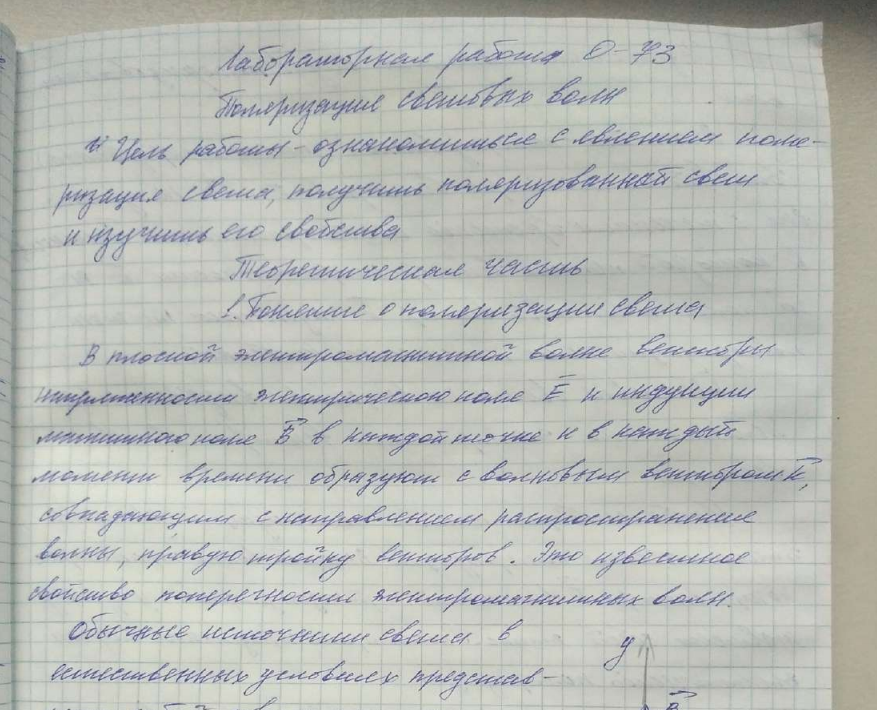 Лабораторная работа О-73
Поляризация световых волн
Цель работы - ознакомиться с явлением поля-
ризация света, получить поляризованный свет
и изучить его свойства
Теоретическая часть
1. Понятие о поляризации света
В плоской электромагнитной волне векторы
напряженности электрического поля E и индукции
магнитного поля B в каждой точке и в каждый
момент времени образуют с волновым вектором k,
совпадающим с направлением распространения
волны, правую тройку векторов. Это известное
свойство поперечности электромагнитных волн.
Обычные источники света в
y
естественных условиях представ-
B